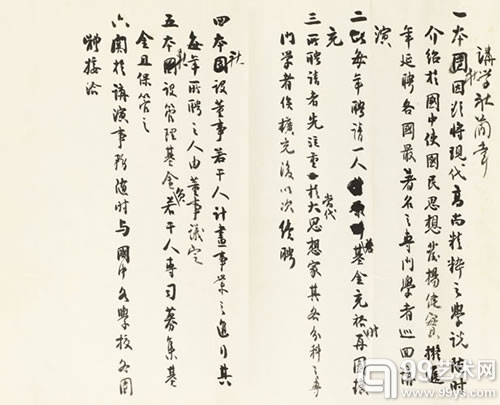 講學社簡章
一本社團因欲將現代高尚精粹之學說隨時
介紹於國中使國民思想發揚健實擬遞
年延聘各國最著名之專門學者巡回講
演
二 每年聘請一人 若基金充裕時再圖擴
充
三所聘請者先注重於當代大思想家其各分科之專
門學者俟擴充後以次續聘
四本社團設董事若干人計畫事業之進行其
每年所聘之人由董事議定
五本社團設管理基金員若干人專司募集基
金且保管之
六關於講演事務隨時與國中各學校各團
體接洽
99艺术网
99ys.com